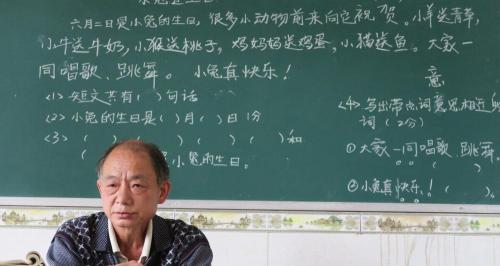 六月二日是小兔的生日，很多小动物前来向它祝贺。小羊送青草，
小牛送牛奶，小猴送桃子，鸡妈妈送鸡蛋，小猫送鱼。大家一
同唱歌、跳舞。小兔真快乐！
意
<1>短文共有（ ）句话
<2>小兔的生日是（ ）月（ ）日 1分
<3>（ ）（ ）（ ）（ ）和
（ 小兔的生日。
<4>写出带点词意思相近的
词（2分）
①大家一同唱歌、跳舞。
（ ）
②小兔真快乐！（ ）